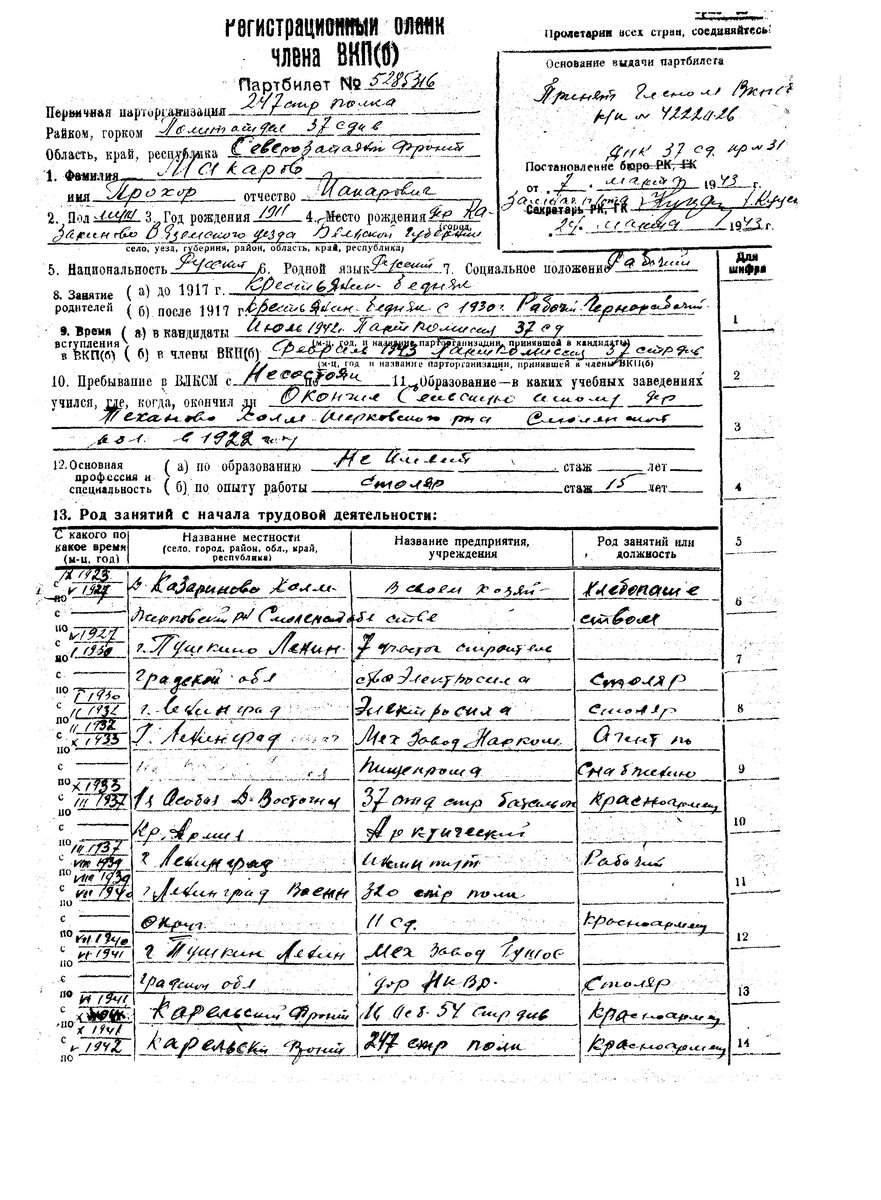 Регистрационный бланк
члена ВКП(б)
Партбилет № 5285316
Первичная парторганизация 247 стр полка
Райком, горком Политотдел 37 сдив
Область, край, республика Северозападн фронт
1. Фамилия Макаров
имя Прохор отчество Макарович
2. Пол муж 3. Год рождения 1911 4. Место рождения дер Ка-
(город,
зариново Вяземского уезда Бельской губернии
село, уезд, губерния, район, область, край, республика)
Пролетарии всех стран, соединяйтесь!
Основание выдачи партбилета
Принят членом ВКП(б)
КК № 4222426
ДПК 37 сд пр № 31
Постановление бюро РК, ГК
от 7 марта 1943 г.
Секретарь РК, ГК
24 марта 1943 г.
5. Национальность Русский 6. Родной язык Русский 7. Социальное положение Рабочий
Для шифра
8. Занятие родителей (а) до 1917 г. Крестьянин-бедняк
(б) после 1917 г. крестьянин-бедняк с 1930 г. Рабочий-Чернорабочий
1
9. Время вступления в ВКП(б) (а) в кандидаты Июль 1942 г. Парткомиссия 37 сд
(м-ц, год и название парторганизации, принявшей в кандидаты)
(б) в члены ВКП(б) Февраль 1943 Парткомиссия 37 стр див
(м-ц, год и название парторганизации, принявшей в члены ВКП(б)
2
10. Пребывание в ВЛКСМ с Несостоял по 11. Образование—в каких учебных заведениях
учился, где, когда, окончил ли Окончил Сельскую школу дер
Теханово Холм-Жерковского рна Смоленской
3
обл. в 1922 году
12. Основная профессия и специальность (а) по образованию Не имеет стаж лет
(б) по опыту работы столяр стаж 15 лет
4
13. Род занятий с начала трудовой деятельности:
С какого по какое время (м-ц, год) Название местности (село, город, район, обл., край, республика) Название предприятия, учреждения Род занятий или должность
5
с IX 1923 по V 1927 д. Казариново Холм- в своем хозяй- Хлебопаше
6
с Жирковский рн Смоленской обл стве ством
по
с V 1927 по I 1930 г. Пушкино Ленин- 7 участок строитель
7
с градской обл ства Электросила столяр
по
с I 1930 по II 1932 г. Ленинград Электросила столяр
8
с II 1932 по X 1933 г. Ленинград Мех Завод Нарком. Агент по
с Пищепрома снабжению
9
по
с X 1933 по III 1937 1я Особая Д-Восточная 37 отд стр батальон красноармеец
10
с Кр. Армия Арктический
по
с III 1937 по VIII 1939 г Ленинград институт Рабочий
11
с VIII 1939 по VII 1940 г Ленинград Военн 320 стр полк
с округ 11 сд. красноармеец
12
по
с VII 1940 по VI 1941 г Пушкин Ленин Мех Завод Гушос
с градской обл дор НКВД. Столяр
13
по
с VI 1941 по X 1941 Карельский Фронт 54 стр див красноармеец
с X 1941 по V 1942 Карельский Фронт 247 стр полк красноармеец
14